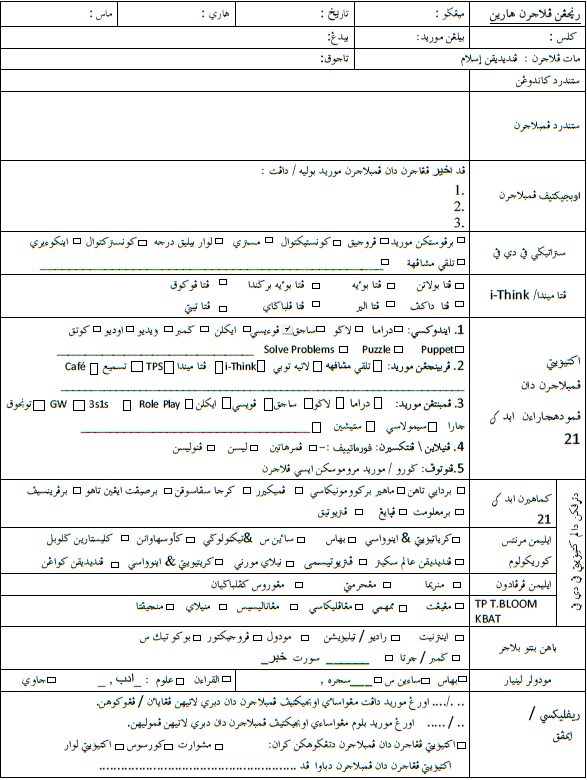 رنچڠن ڤلاجرن هارين ميڠݢو : تاريخ : هاري : ماس :
کلس : بيلڠن موريد: بيدڠ:
مات ڤلاجرن : ڤنديديقن إسلام تاجوق:
ستندرد کاندوڠن
ستندرد ڤمبلاجرن
اوبجيکتيف ڤمبلاجرن ڤد اخير ڤڠاجرن دان ڤمبلاجرن موريد بوليه / داڤت :
1.
2.
3.
ستراتيݢي ڤي دي ڤي □ برڤوستکن موريد □ ڤروجيق □ کونستيکتوال □ مستري □ لوار بيليق درجه □ کونسترکتوال □ اينکوءيري
□ تلقي مشافهة
ڤتا ميندا/ i-Think □ ڤتا بولاتن □ ڤتا بوءيه □ ڤتا بوءيه برݢندا □ ڤتا ڤوکوق
□ ڤتا داکڤ □ ڤتا الير □ ڤتا ڤلباݢاي □ ڤتا تيتي
اکتيۏيتي
ڤمبلاجرن دان
ڤمودهچاراءين ابد ک
21
1. ايندوکسي: □ دراما □ لاکو □ ساجق ☑ قوءيسي □ ايکلن □ ݢمبر □ ۏيديو □ اوديو □ کوتق
□ Puppet □ Puzzle □ Solve Problems
2. ڤربينچڠن موريد: □ تلقي مشافهه □ لاتيه توبي □ i-Think □ ڤتا ميندا □ TPS □ تسميع □ Café
3. ڤمبنتڠن موريد: □ دراما □ لاݢو □ ساجق □ قويسي □ ايکلن □ Role Play □ 3s1s □ GW □ تونجوق
جارا □ سيمولاسي □ ستيشين
4. ڤنيلاين \ ڤنتکسيرن: فورماتييف :- □ ڤمرهاتين □ ليسن □ ڤنوليسن
5. ڤنوتوڤ: ݢورو / موريد مروموسکن ايسي ڤلاجرن
دتراڤکن دالم اکتيۏيتي ڤي دي ڤي
کماهيرن ابد ک
21 □ بردايا تاهن □ ماهير برکومونيکاسي □ ڤميکير □ کرجا سڤاسوقن □ برصيفت ايڠين تاهو □ برڤرينسيڤ
□ برمعلومت □ ڤڽايڠ □ ڤتريوتيق
ايليمن مرنتس
کوريکولوم □ کرياتيۏيتي & اينوۏاسي □ بهاس □ ساءين س &تيکنولوݢي □ کأوسهاوانن □ کلستارين ݢلوبل
□ ڤنديديقن عالم سکيتر □ ڤتريوتيسمي □ نيلاي مورني □ کرياتيۏيتي & اينوۏاسي □ ڤنديديقن کواڠن
ايليمن ڤرڤادوان □ منريما □ مڠحرمتي □ مڠوروس کڤلباݢيان
TP T.BLOOM
KBAT □ مڠيڠت □ ممهمي □ مڠاڤليکاسي □ مڠاناليسيس □ منيلاي □ منچيڤتا
باهن بنتو بلاجر □ اينترنيت □ راديو / تيليۏيشين □ مودول □ ڤروجيکتور □ بوکو تيک س
□ ݢمبر / چرتا □ سورت خبر
مودولر لينيار □ بهاس □ ساءين س □ سجره , □ القرءان □ علوم : _ادب, _ □ جاوي
ريفليکسي /
ايمڤق
.. ./.... اورڠ موريد داڤت مڠواساءي اوبجيکتيف ڤمبلاجرن دان دبري لاتيهن ڤڠاياءن / ڤڠوکوهن.
.. /..... اورڠ موريد بلوم مڠواساءي اوبجيکتيف ڤمبلاجرن دان دبري لاتيهن ڤموليهن.
□ اکتيۏيتي ڤڠاجرن دان ڤمبلاجرن دتڠݢوهکن کران: □ مشوارت □ کورسوس □ اکتيۏيتي لوار
اکتيۏيتي ڤڠاجرن دان ڤمبلاجرن دباوا ڤد ........................................